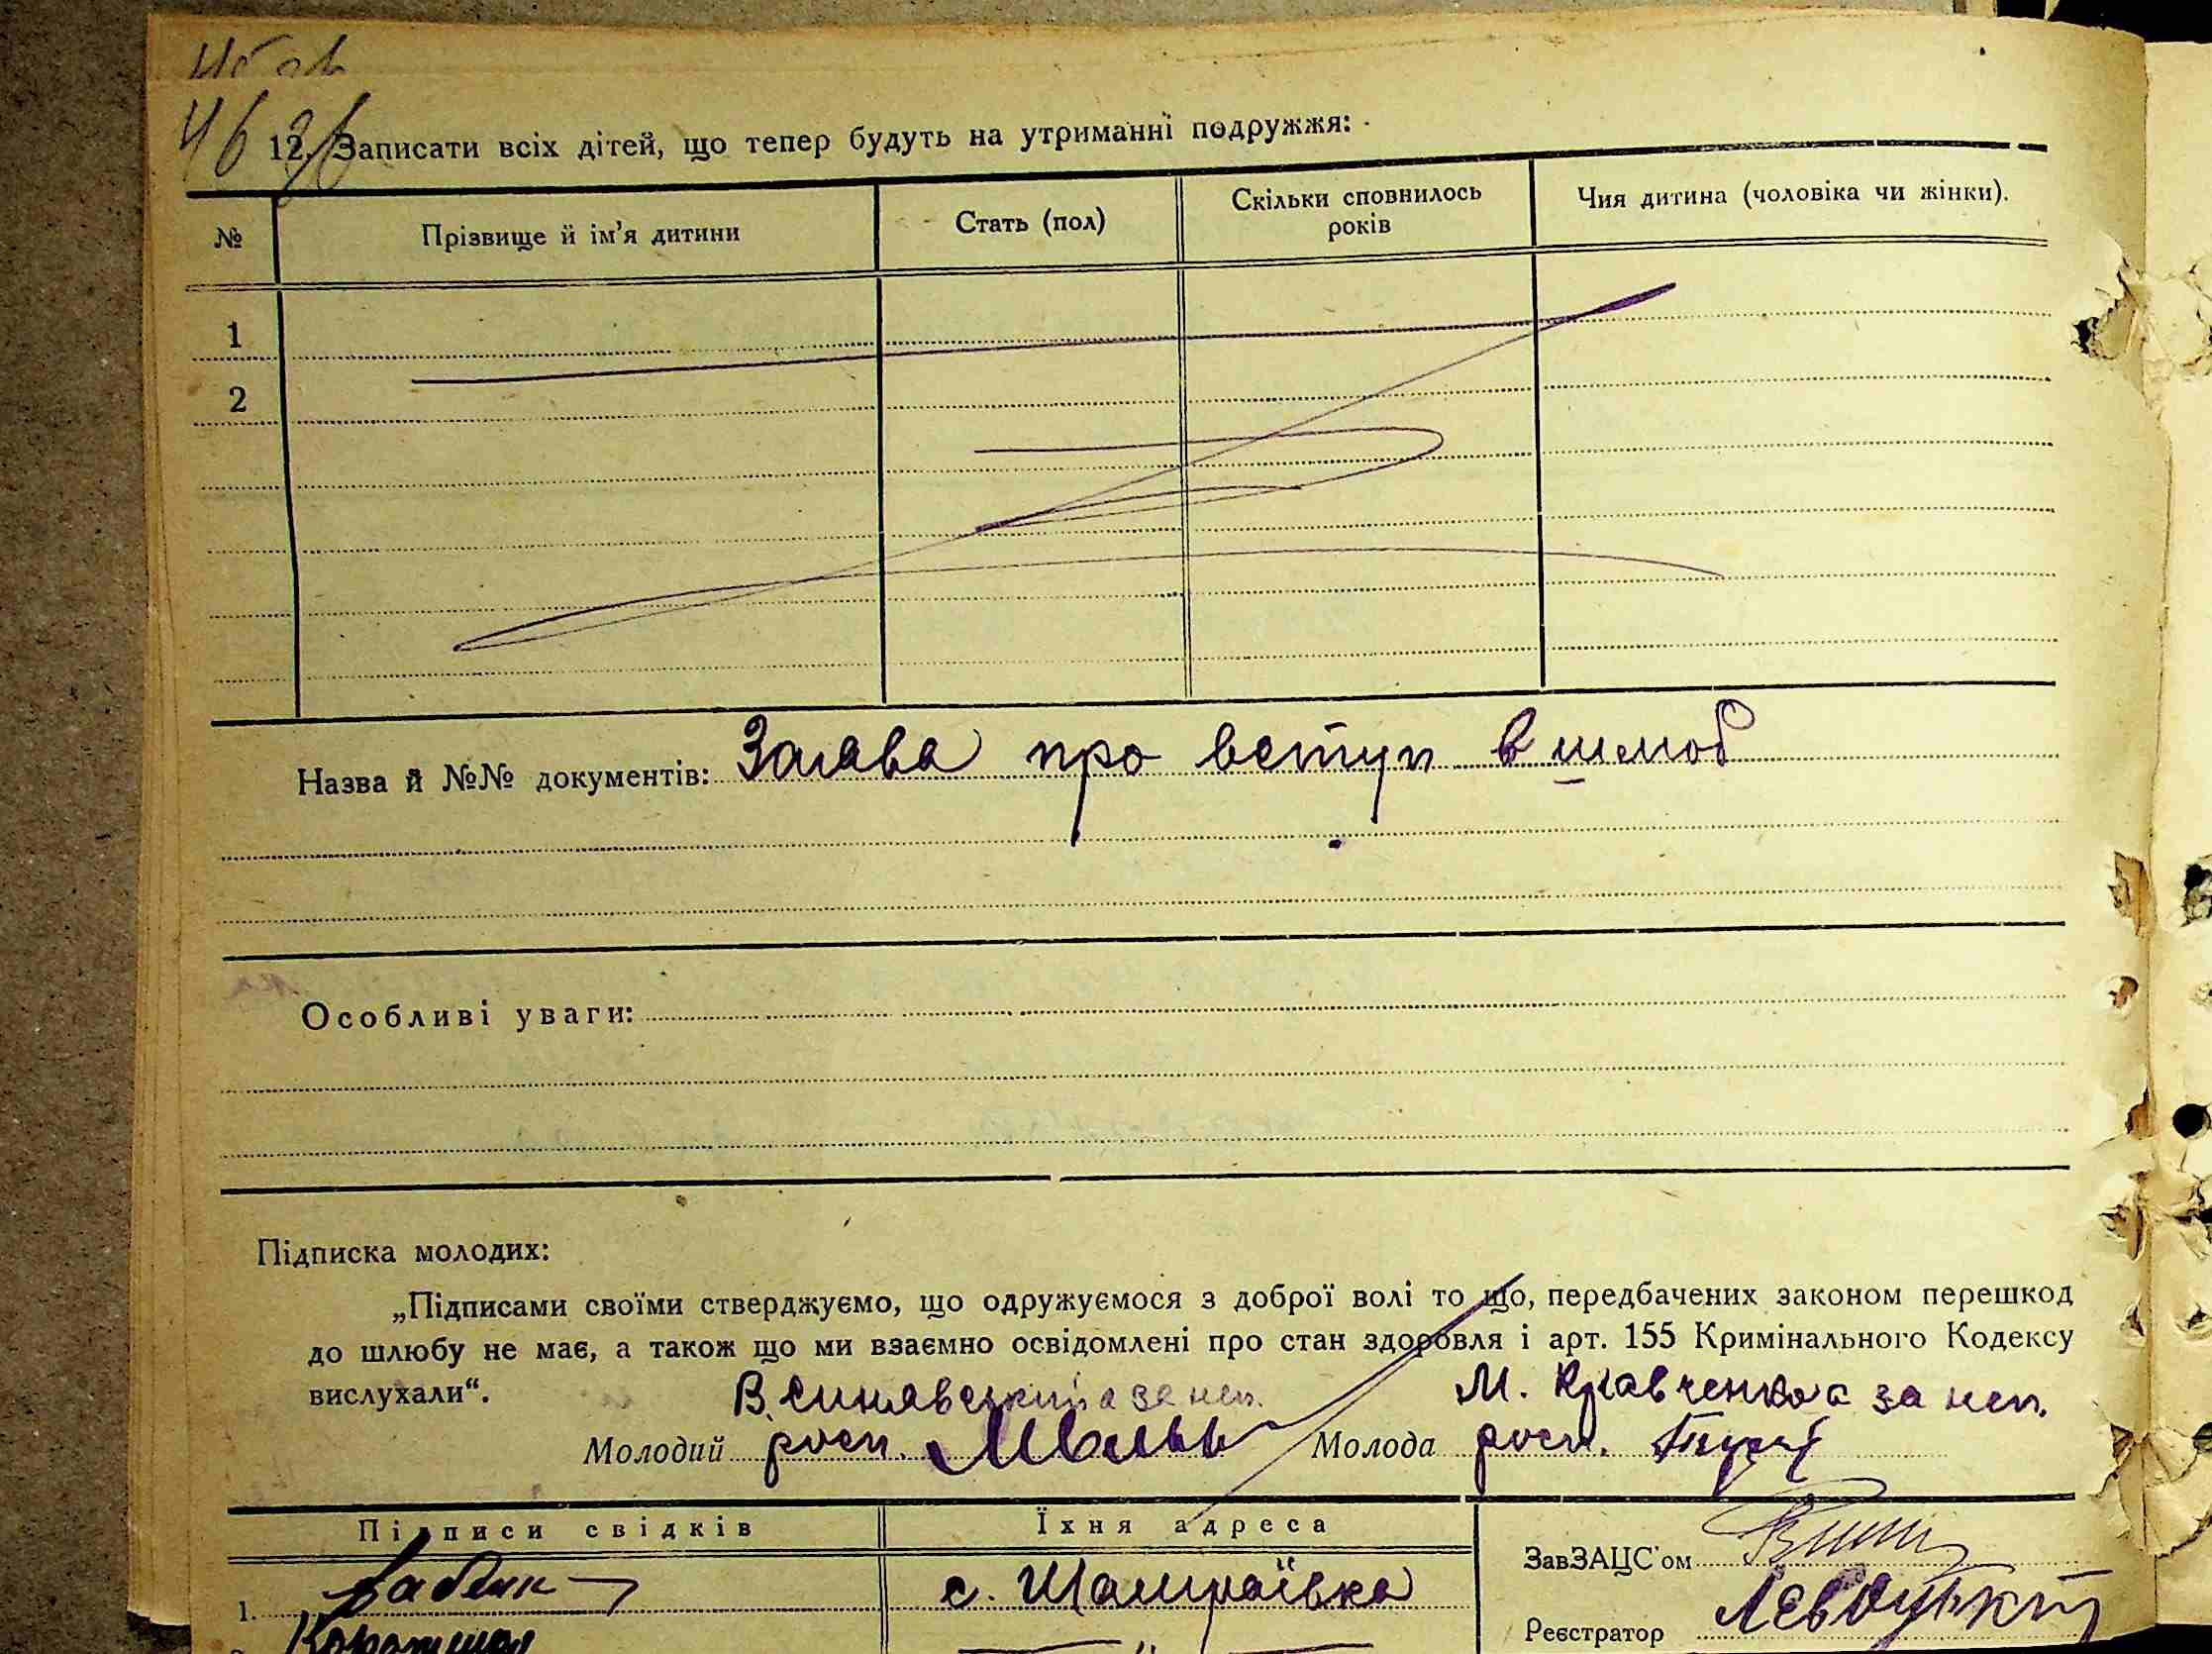 46 зв
12. Записати всіх дітей, що тепер будуть на утриманні подружжя:
№ Прізвище й ім'я дитини Стать (пол) Скільки сповнилось років Чия дитина (чоловіка чи жінки).
1
2
Назва й №№ документів: Заява про вступ в шлюб
Особливі уваги:
Підписка молодих:
„Підписами своїми стверджуємо, що одружуємося з доброї волі то що, передбачених законом перешкод
до шлюбу не має, а також що ми взаємно освідомлені про стан здоровля і арт. 155 Кримінального Кодексу
вислухали“.
В. Синявський а за неп. М. Кравченко а за неп.
Молодий росп. Молода росп.
Підписи свідків Їхня адреса
ЗавЗАЦС'ом
1. Бабенк с. Шамраївка
Реєстратор Левдуцький
"